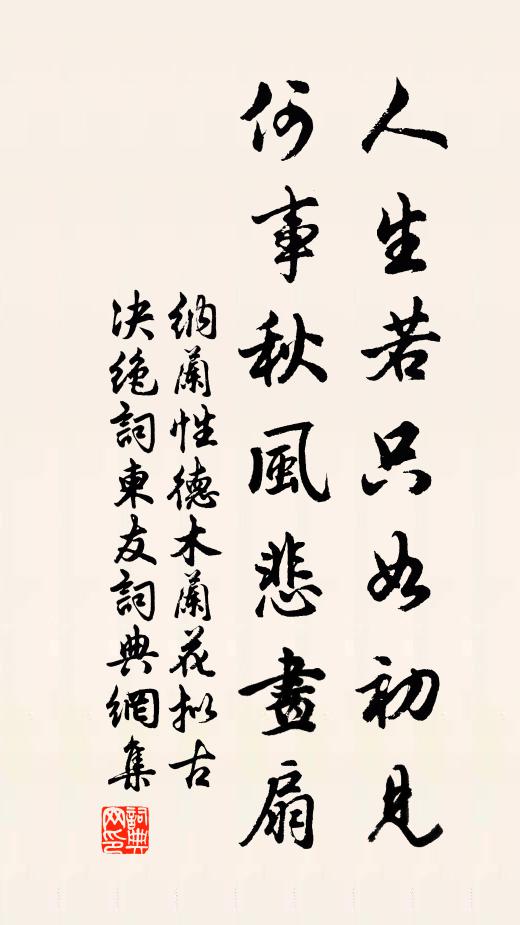 人生若只如初見
何事秋風悲畫扇
納蘭性德木蘭花拟古
决絶詞東友詞典網集
詞典网印